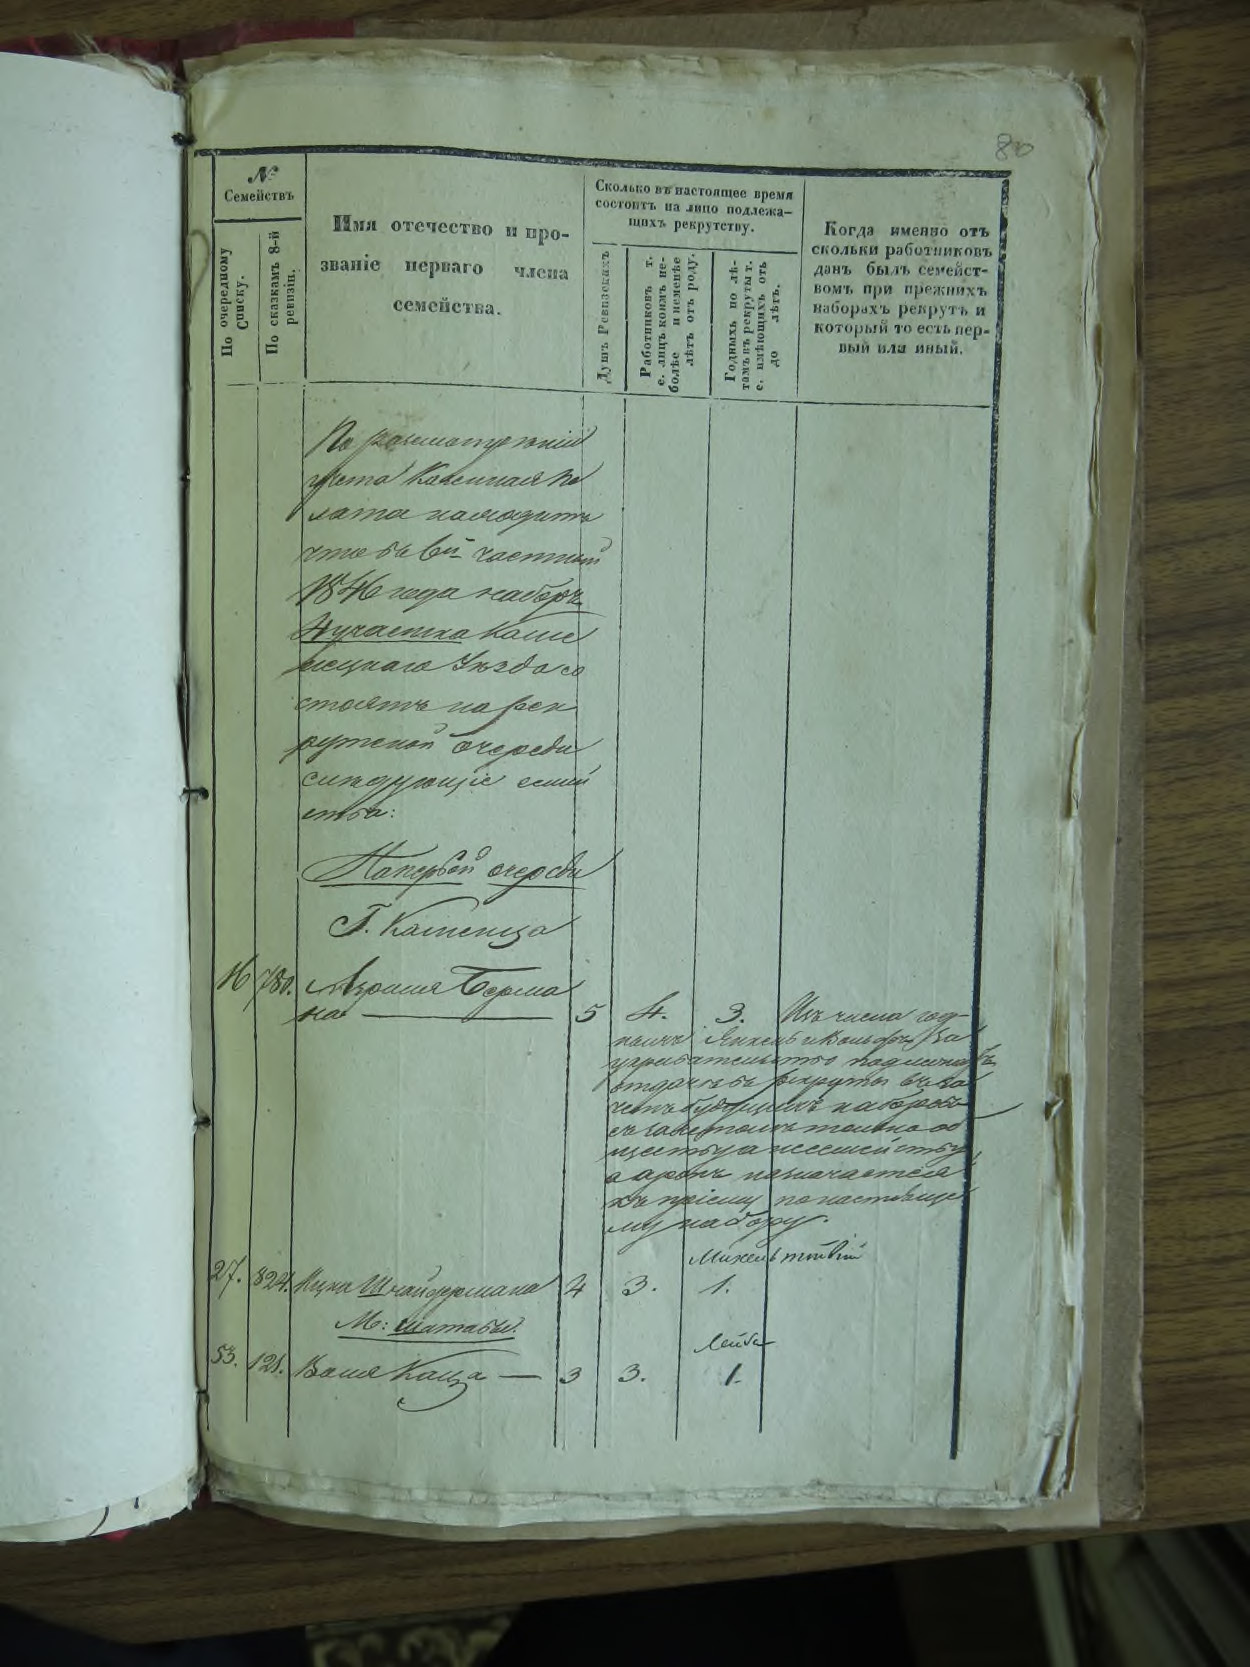 80
№
Семействъ
По очередному
Списку.
По сказкамъ 8-й
ревизіи.
Имя отечество и про-
званіе перваго члена
семейства.
Сколько въ настоящее время
состоитъ на лицо подлежа-
щихъ рекрутству.
Душъ Ревизскихъ
Работниковъ т.
е. лицъ коимъ не-
болѣе и неменѣе
лѣтъ отъ роду.
Годныхъ по лѣ-
тамъ въ рекруты т.
е. имѣющихъ отъ
до лѣтъ.
Когда именно отъ
скольки работниковъ
данъ былъ семейст-
вомъ при прежнихъ
наборахъ рекрутъ и
который то есть пер-
вый или иный.
По разсмотреніи
учета Казенная Па
лата находитъ
что въ 6й частный
1846 года наборъ
4 участка Каме
нецкаго Уѣзда со
стоятъ на рек
рутской очереди
слѣдующіе семей
ства:
На первой очереди
Г. Каменца
16 780. Берма
на — 5 4. 3. Изъ числа год-
ныхъ Янкель и Вольфъ за
подлежатъ
отдачѣ въ рекруты въ за
четъ будущихъ наборовъ
съ зачетомъ только об
ществу а не семейству
а назначается
къ пріему по настояще
му набору.
27. 824. Ицка Шнайдермана 4 3. 1.
М:
Лейба
53. 121. Каца — 3 3. 1.